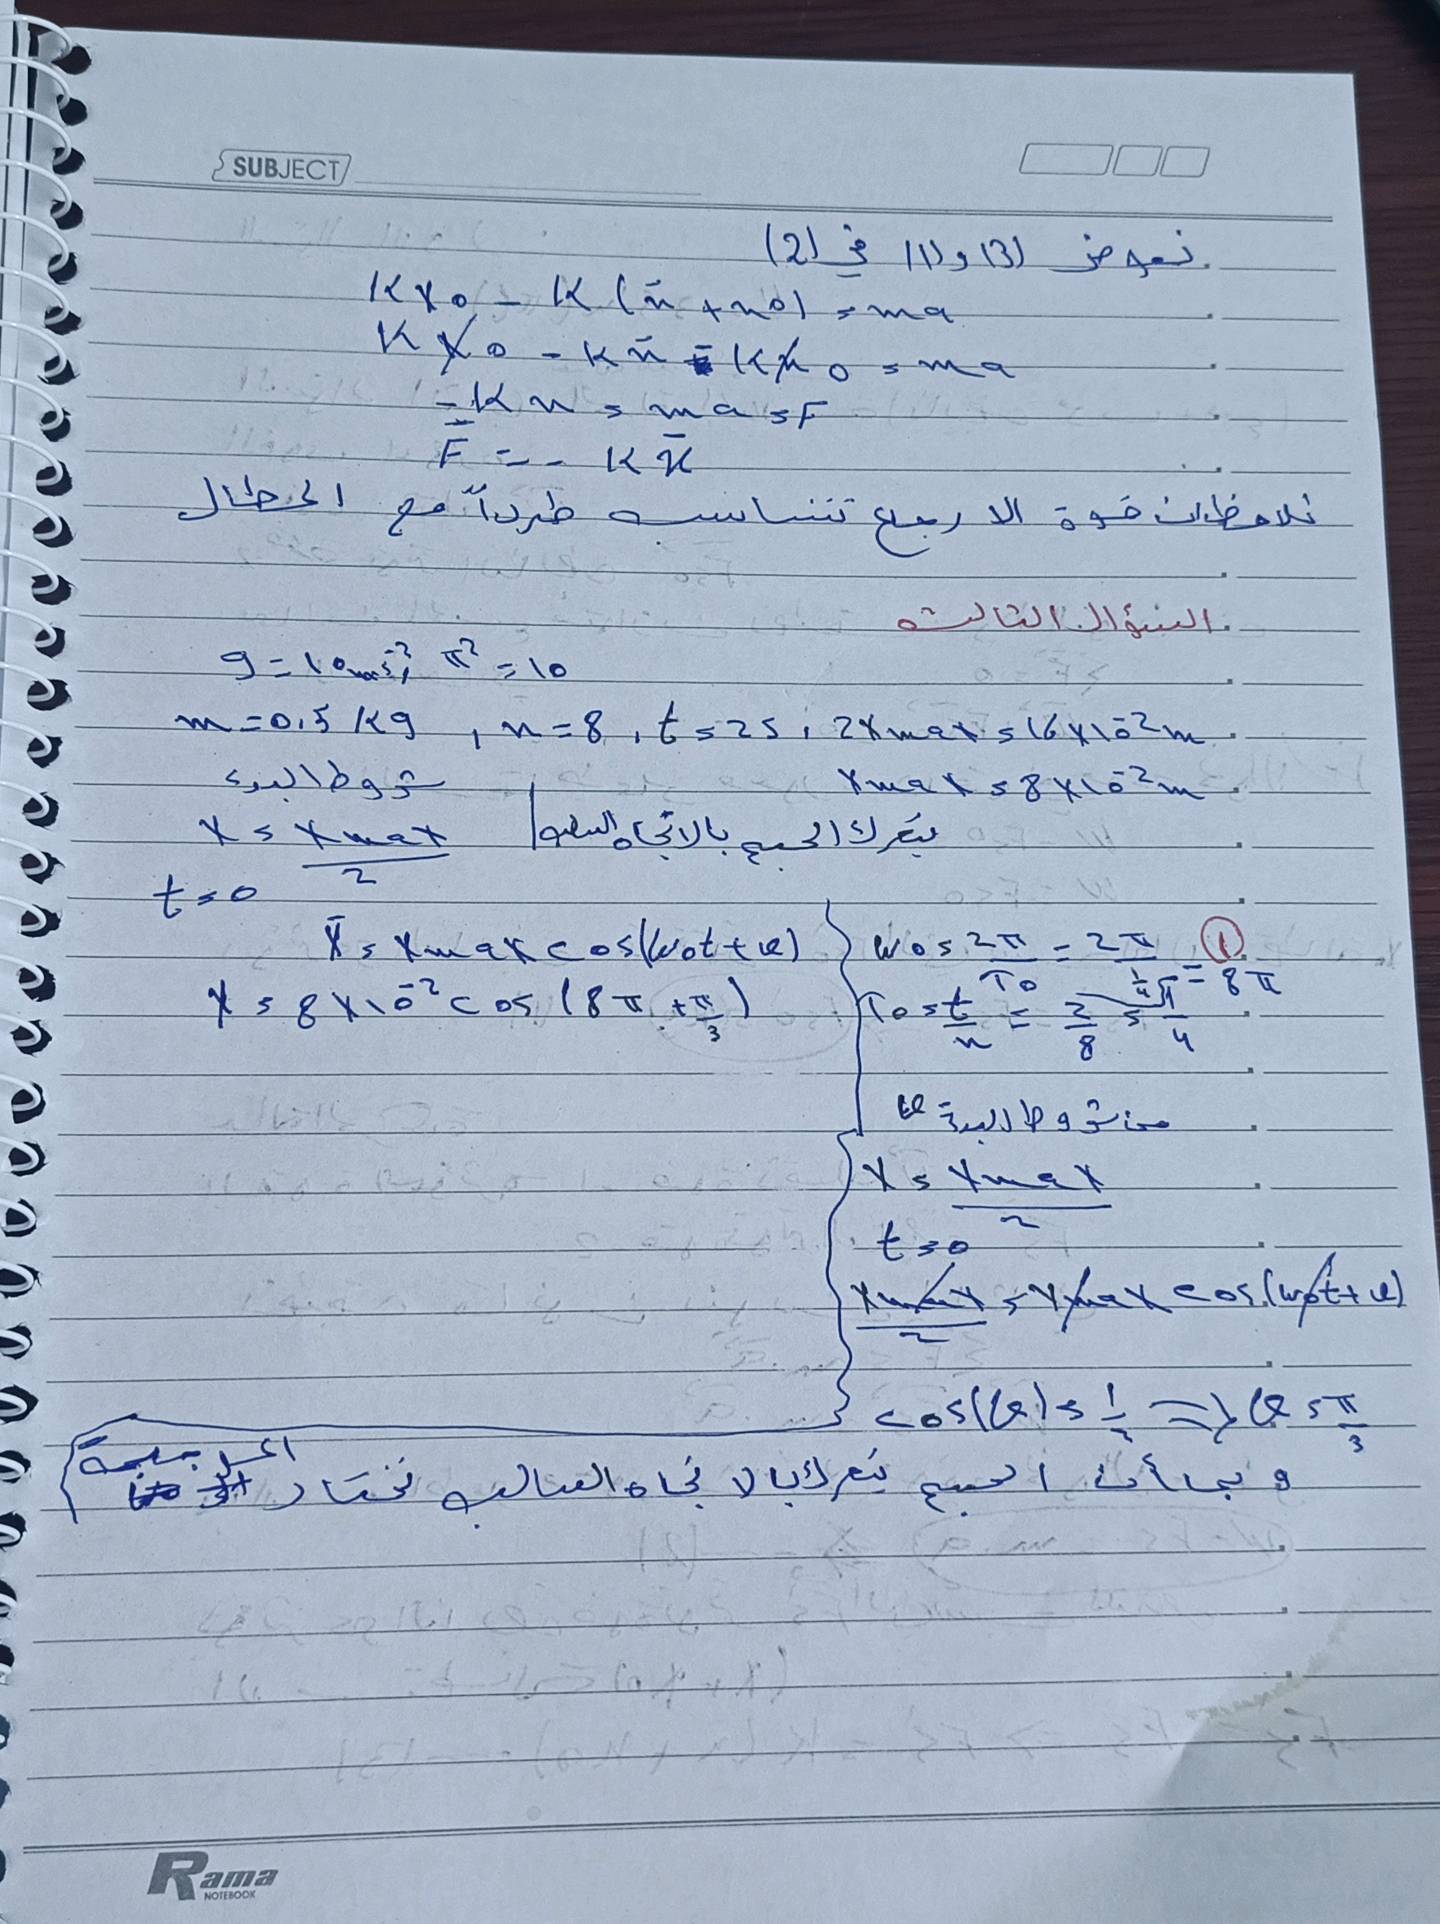 SUBJECT
نعوض (3) و (1) في (2)
Kx0 - K(x̄ + x0) = ma
Kx0 - Kx̄ - Kx0 = ma
-Kx = ma = F
F̄ = - Kx̄
نلاحظ ان قوة الارجاع تتناسب طرداً مع المطال
السؤال الثالث
g = 10 ms⁻², π² = 10
m = 0.5 Kg , n = 8 , t = 2s , 2Xmax = 16 x 10⁻² m
Xmax = 8 x 10⁻² m
شروط البدء
يتحرك الجسم بالاتجاه السالب
X = Xmax/2
t = 0
X̄ = Xmax cos(ω0t + φ)
X = 8 x 10⁻² cos(8π + π/3)
① ω0 = 2π/T0 = 2π/(1/4) = 8π
T0 = t/n = 2/8 = 1/4
من شروط البدء φ=
X = Xmax/2
t = 0
Xmax/2 = Xmax cos(ω0t + φ)
cos(φ) = 1/2 => φ = π/3
وبما أن الجسم يتحرك بالاتجاه السالب نختار الموجبة
Rama
NOTEBOOK